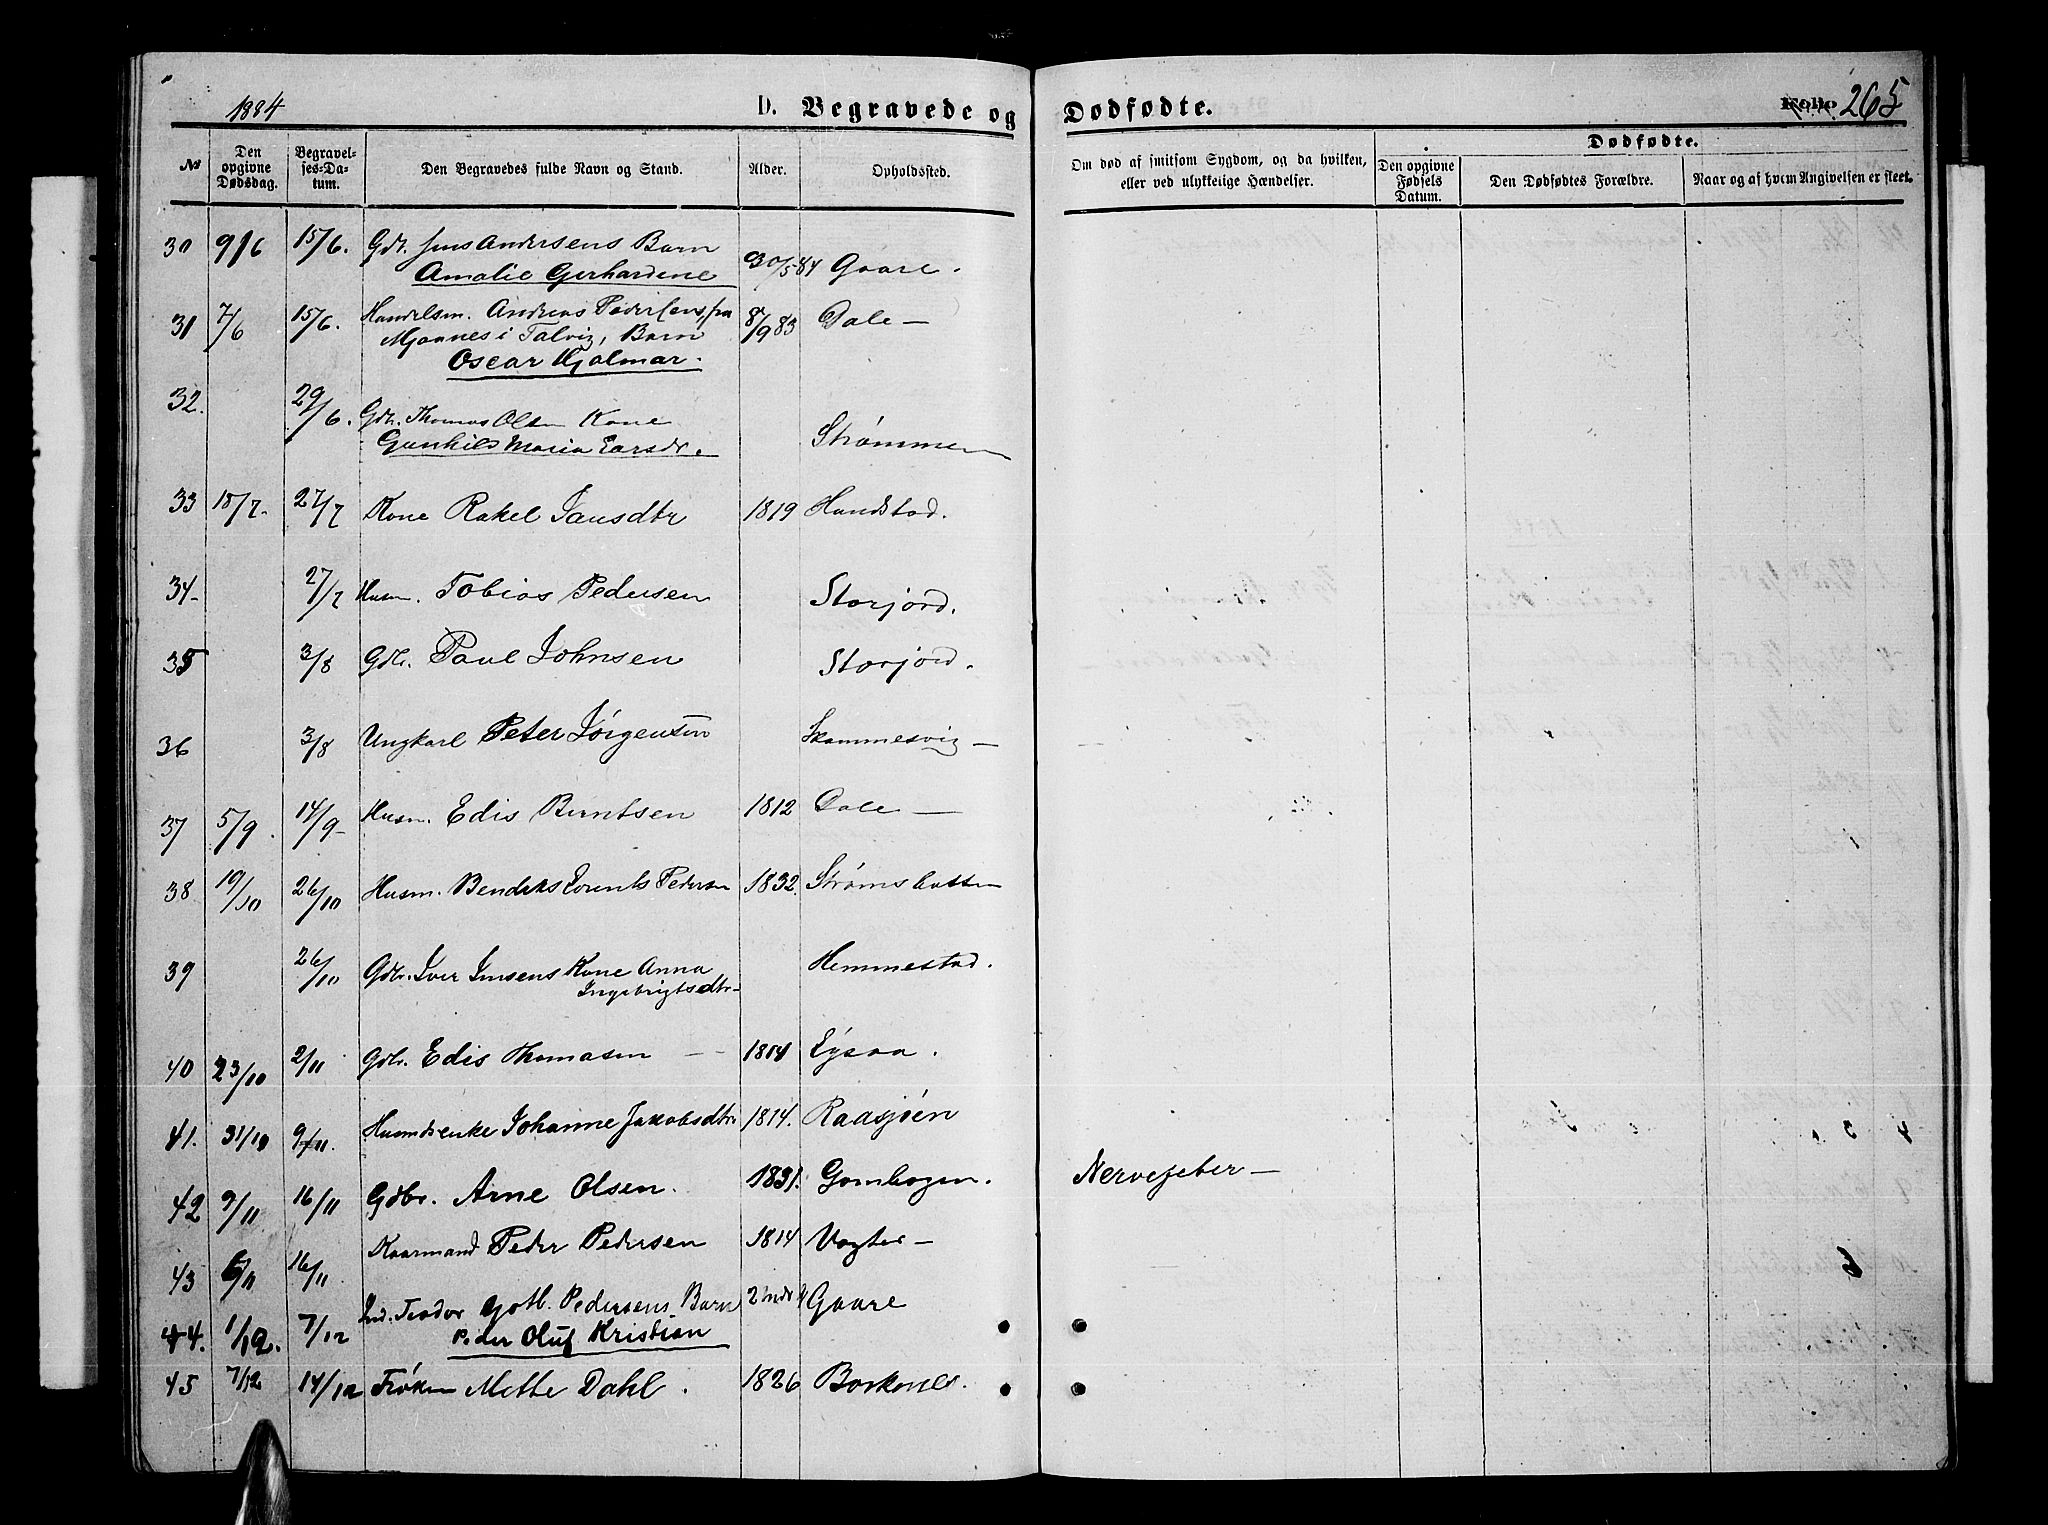 1884 D. Begravede og Dødfødte. Folio 265
No
Den opgivne Dødsdag.
Begravel-ses-Da-tum.
Den Begravedes fulde Navn og Stand.
Alder.
Opholdssted.
Om død af smitsom Sygdom, og da hvilken, eller ved ulykkelige Hændelser.
Dødfødte.
Den opgivne Fødsels Datum.
Den Dødfødtes Forældre.
Naar og af hvem Angivelsen er skeet.
30 9/6 15/6. Gdb. Jens Andersens Barn
Amalie Gerhardine 30/5 84 Gaare.
31 7/6 15/6. Handelsm. Andreas Pedersens, fra 8/9 83 Dale —
i Talvig, Barn
Oscar Hjalmar.
32. 29/6. Gdb. Thomas Olsen Kone
Gunhild Maria Larsdr. Strømmen
33 18/7. 27/7 Kone Rakel Jansdtr 1819 Handstad.
34- 27/7 Husm. Tobias Pedersen Storjord.
35 3/8 Gdb. Paul Johnsen Storjord.
36 3/8 Ungkarl Peter Jørgensen Skammesvig —
37 5/9. 14/9- Husm. Edis Berntsen 1812 Dale —
38 19/10 26/10 Husm. Bendiks Lorents Pedersen 1832. Strømsbotten
39 26/10 Gdb. Iver Jensens Kone Anna
Ingebrigtsdtr- Hemmestad.
40 23/10 2/11 Gdb. Edis Thomasen — 1814 Lysaa.
41. 31/10 9/11. Husmdsenke Johanne Jakobsdtr 1814. Raasjøen
42 9/11 16/11 Gdbr. Arne Olsen. 1831. Gombogen. Nervefeber —
43 6/11 16/11 Kaarmand Peder Pedersen 1814 Vogter —
44. 1/12. 7/12 Ind. Teodor Gotl. Pedersens Barn 2 mdr Gaare
Peder Oluf Kristian
45 7/12 14/12 Frøken Mette Dahl. 1826 Borkenes.